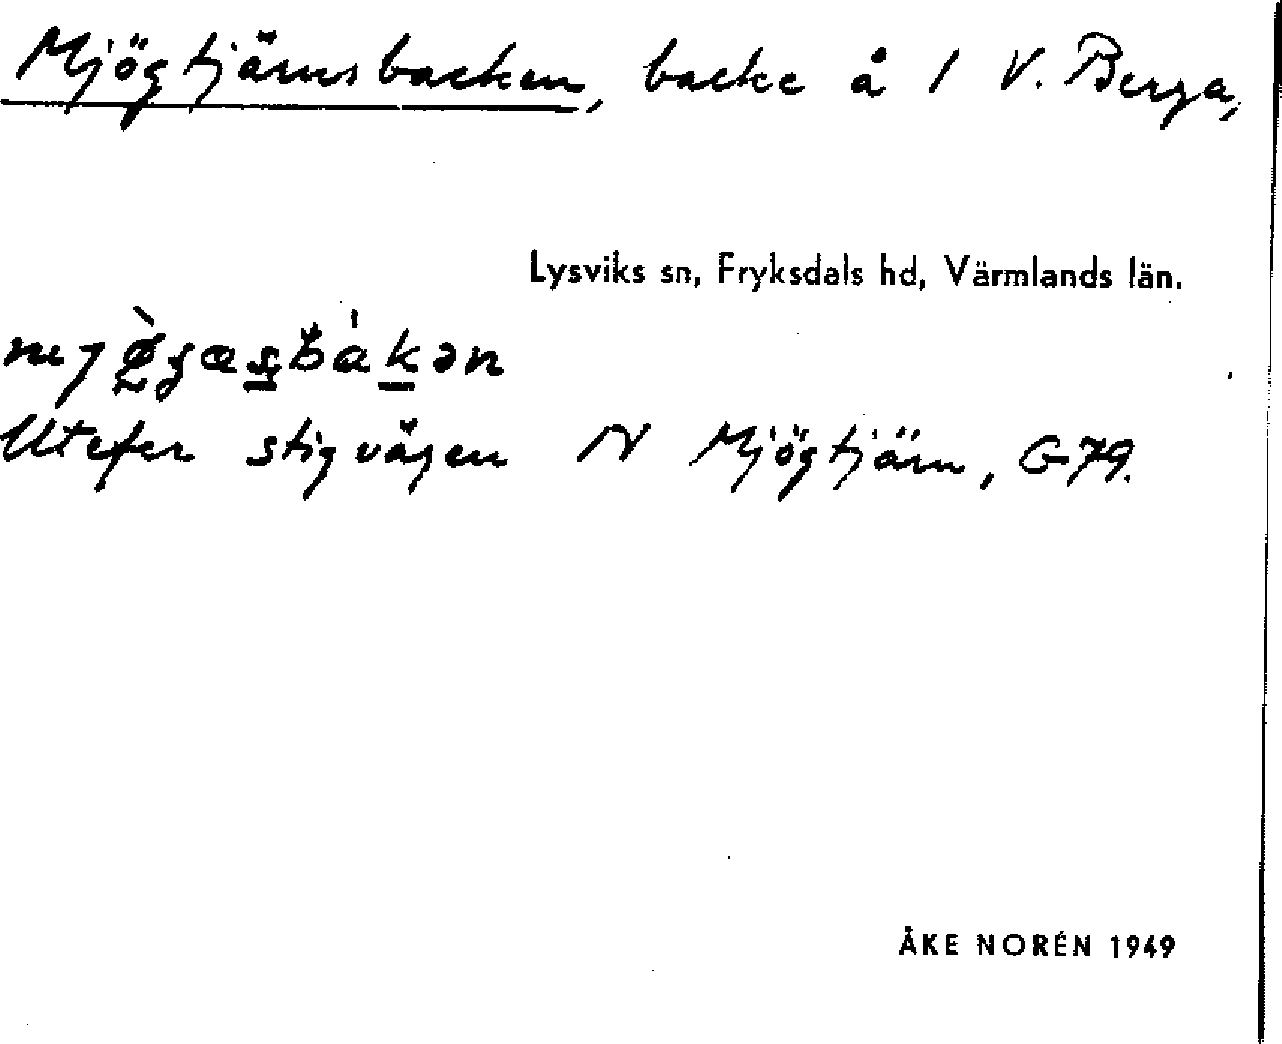 Mjögtjärnsbacken, backe å 1 V. Berga,
Lysviks sn, Fryksdals hd, Värmlands län.
Utefter stigvägen N Mjögtjärn, G79.
ÅKE NORÉN 1949